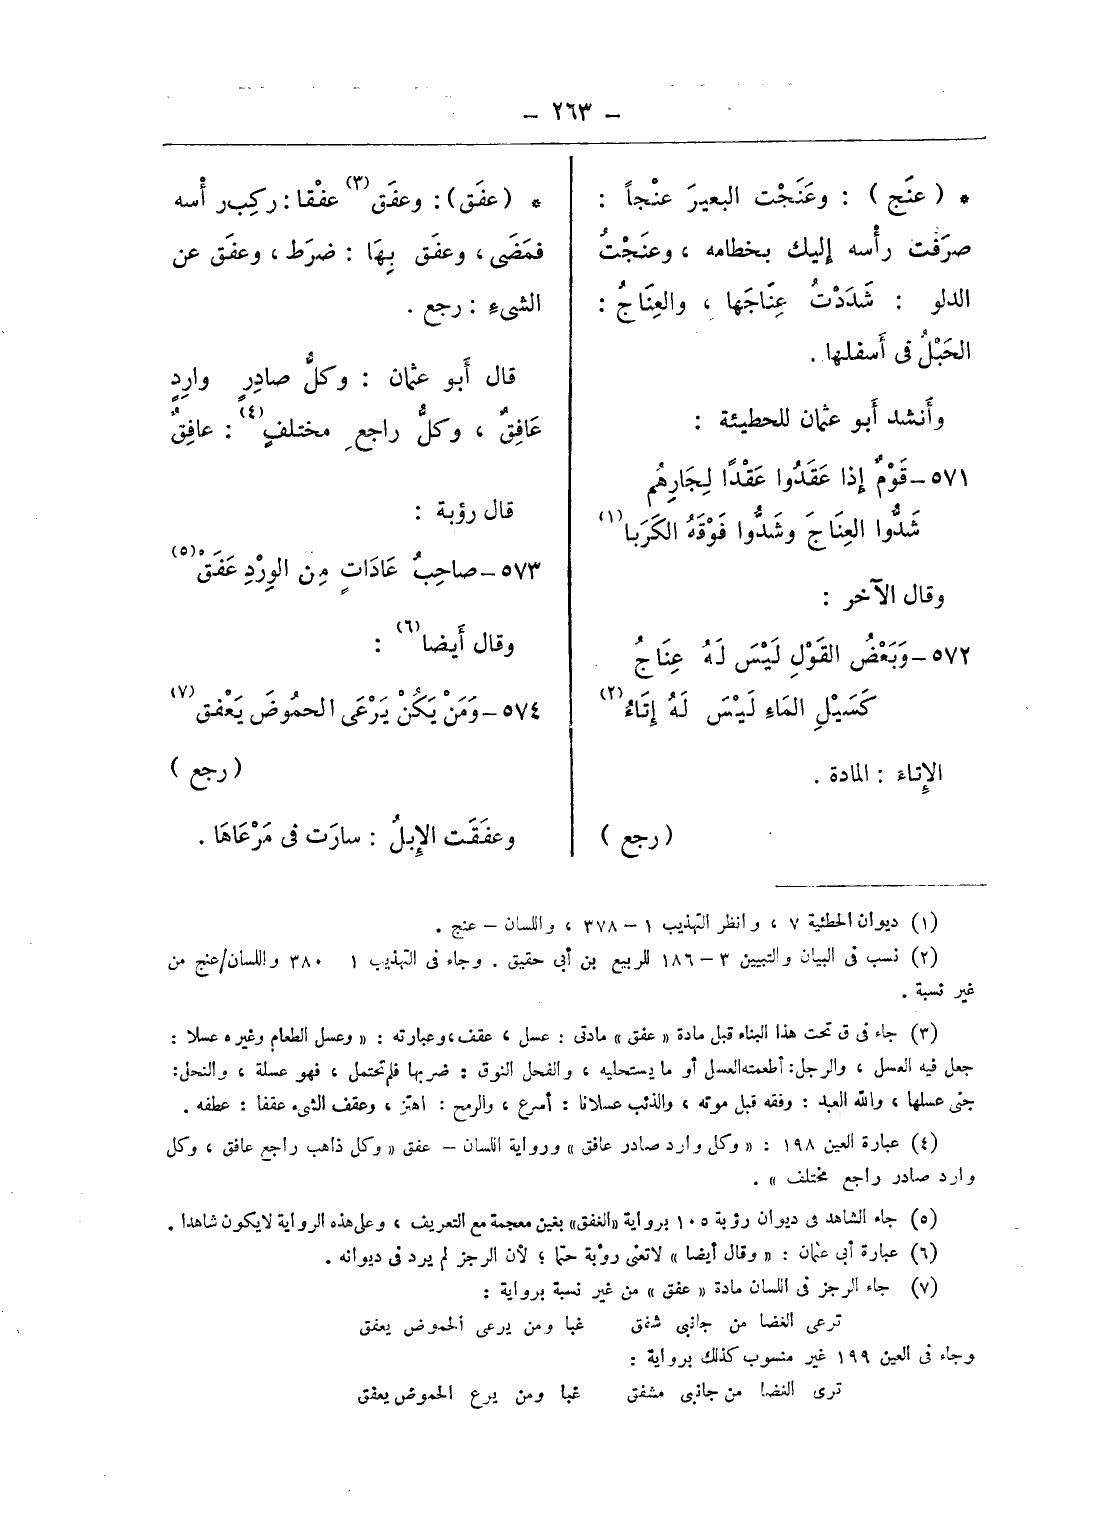 - ٢٦٣ -
* ( عنَج ) : وعَنَجْت البعيرَ عنْجاً :
صرَفت رأْسه إليك بخطامه ، وعنَجْتُ
الدلو : شَدَدْتُ عِنَاجَها ، والعِنَاجُ :
الحَبْلُ فى أَسفلها .
وأَنشد أَبو عثمان للحطيئة :
٥٧١ــ قَوْمٌ إِذا عَقَدُوا عَقْدًا لِجارِهُم
شَدُّوا العِناجَ وشَدُّوا فَوْقَهُ الكَرَبا(١)
وقال الآخر :
٥٧٢ــ وَبَعْضُ القَوْلِ لَيْسَ لَهُ عِنَاجُ
كَسَيْلِ الماءِ لَيْسَ لَهُ إِتَاءُ(٢)
الإِتاءَ : المادة .
( رجع )
* ( عفَق ) : وعفَق(٣) عفْقا : ركِب رأْسه
فمَضَى ، وعفَق بِهَا : ضرَط ، وعفَق عن
الشىءِ : رجع .
قال أَبو عثمان : وكلُّ صادِرٍ وارِدٍ
عَافِقٌ ، وكلُّ راجع مختلفٍ(٤) : عافِقٌ
قال رؤبة :
٥٧٣ــ صاحِبُ عَادَاتٍ مِن الوِرْدِ عَفَقْ(٥)
وقال أَيضا(٦) :
٥٧٤ــ وَمَنْ يَكُنْ يَرْعَى الحمُوضَ يَعْفق(٧)
( رجع )
وعفَقَت الإِبلُ : سارَت فى مَرْعَاهَا .
(١) ديوان الحطئية ٧ ، وانظر التهذيب ١ – ٣٧٨ ، واللسان – عنج .
(٢) نسب فى البيان والتبيين ٣ – ١٨٦ للربيع بن أبى حقيق . وجاء فى التهذيب ١ ٣٨٠ واللسان/عنج من
غير نسبة .
(٣) جاء فى ق تحت هذا البناء قبل مادة « عفق » مادتى : عسل ، عقف ، وعبارته : « وعسل الطعام وغيره عسلا :
جعل فيه العسل ، والرجل : أطعمته العسل أو ما يستحليه ، والفحل النوق : ضربها فلم تحتمل ، فهو عسلة ، والنحل :
جنى عسلها ، والله العبد : وفقه قبل موته ، والذئب عسلانا : أسرع ، والرمح : اهتز ، وعقف الشىء عقفا : عطفه .
(٤) عبارة العين ١٩٨ : « وكل وارد صادر عافق » ورواية اللسان – عفق « وكل ذاهب راجع عافق ، وكل
وارد صادر راجع مختلف » .
(٥) جاء الشاهد فى ديوان رؤبة ١٠٥ برواية «الغفق» بغين معجمة مع التعريف ، وعلى هذه الرواية لايكون شاهدا .
(٦) عبارة أبى عثمان : « وقال أيضا » لاتعنى رؤبة حتما ؛ لأن الرجز لم يرد فى ديوانه .
(٧) جاء الرجز فى اللسان مادة « عفق » من غير نسبة برواية :
ترعى الغضا من جانبى شفق غبا ومن يرعى الحموض يعفق
وجاء فى العين ١٩٩ غير منسوب كذلك برواية :
ترى الغضا من جانبى مشفق غبا ومن يرع الحموض يعفق